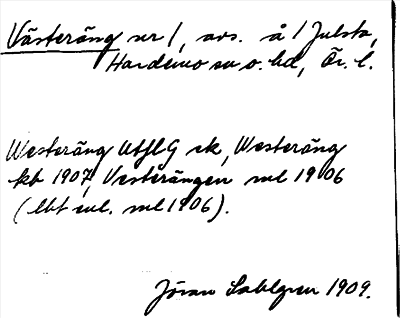 Västeräng nr 1, avs. å 1 Julsta,
Hardemo sn o. hd, Ör. l.
Westeräng UtflG ek, Westeräng
kb 1907, Vesterängen ml 1906
(lbt enl. ml 1906).
Jöran Sahlgren 1909.